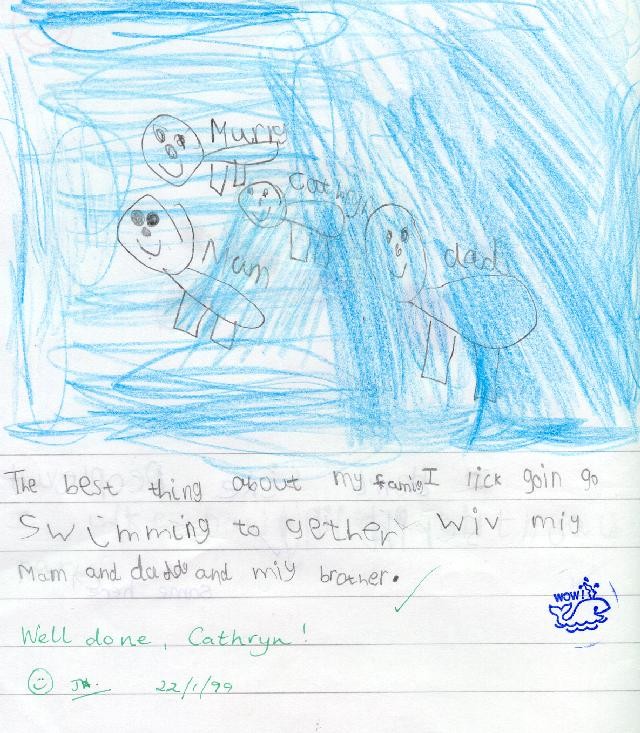 Murry
Cathryn
Mam
dad
The best thing about my famig I lick goin go
Swimming to gether wiv miy
Mam and daddy and miy brother.
Well done, Cathryn!
WOW!
22/1/99